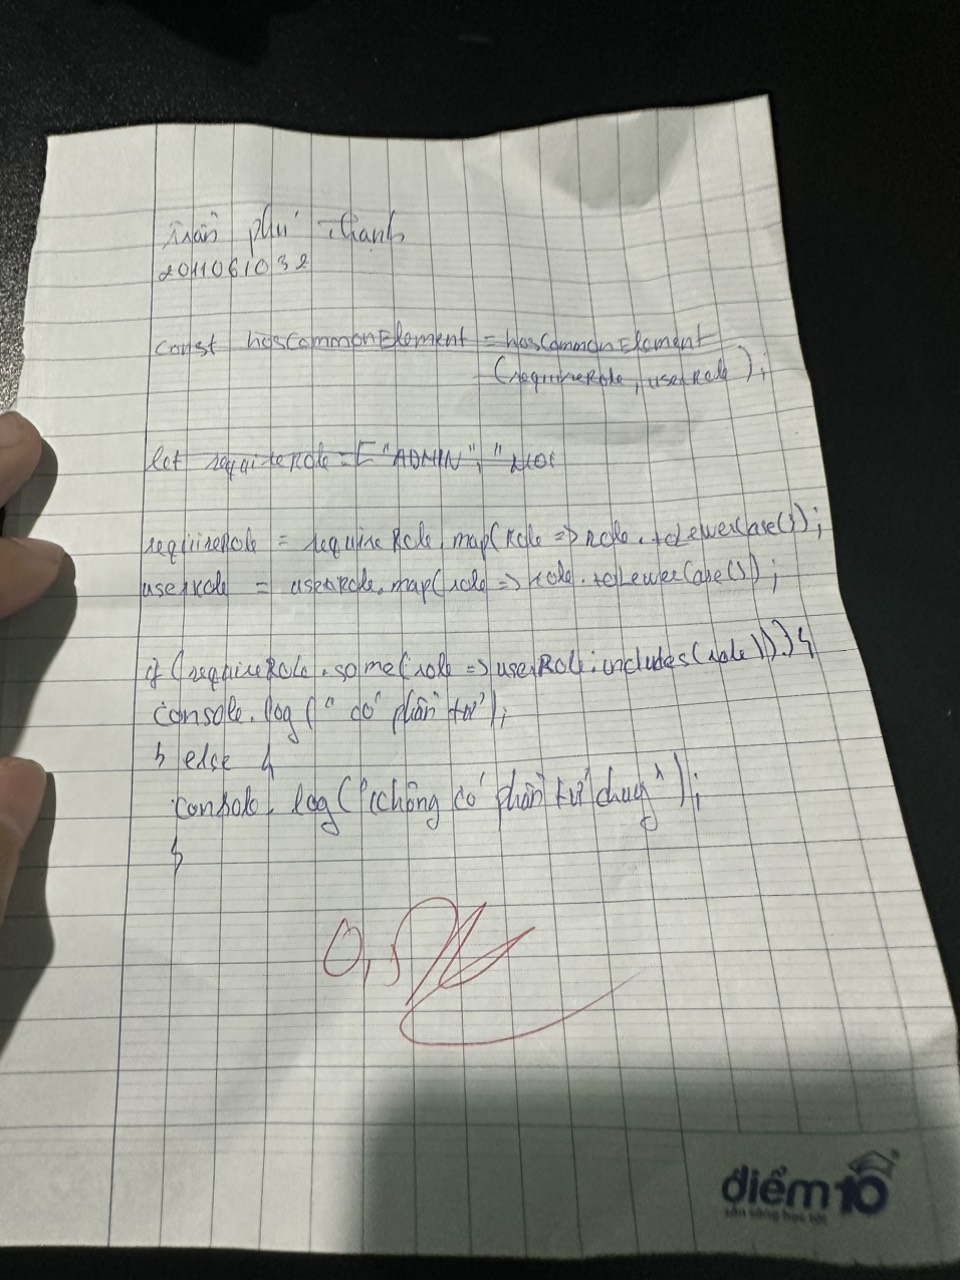 Trần Phú Thành
2011061032
const hasCommonElement = hasCommonElement
(requireRole, userRole);
let requireRole = ["ADMIN", "MO
requireRole = requireRole.map(Role => role.toLowerCase());
userRole = userRole.map(role => role.toLowerCase());
if (requireRole.some(role => userRole.includes(role))) {
console.log(" có phần tử");
} else {
console.log("không có phần tử chung");
}
0,5
điểm10
sẵn sàng học tốt